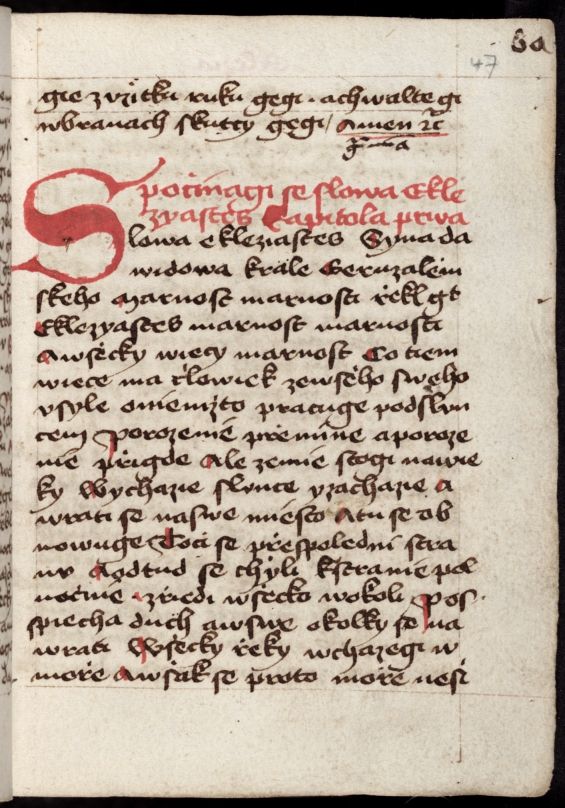 47
gie z uzitku ruku gegi · a chwalte gi
w branach skutcy gegi / Amen
Spocinagi se slowa Ekle
zyastes Capitola prwa
Slowa eklezyastes Syna da
widowa krále Geruzalem
skeho Marnost marnosti řekl gt
Eklezyastes marnost marnosti
A wšecky wiecy marnost Co tiem
wiece ma člowiek ze wšeho sweho
vsyle o niemžto pracuge pod slun
cem Porozenie přemine a poroze
nie přigde Ale zemie stogi na wie
ky Wychazie slunce y zachazie a
wrati se na swe miesto A tu se ob
nowuge Točí se přes poledni stra
nu A odtud se chyli k stranie pol
nočnie zřiedi wšecko w okoli Pos
spiecha duch a w swe okolky se na
wrati Wšecky řeky wchazegi w
moře A wšak se proto moře nesi